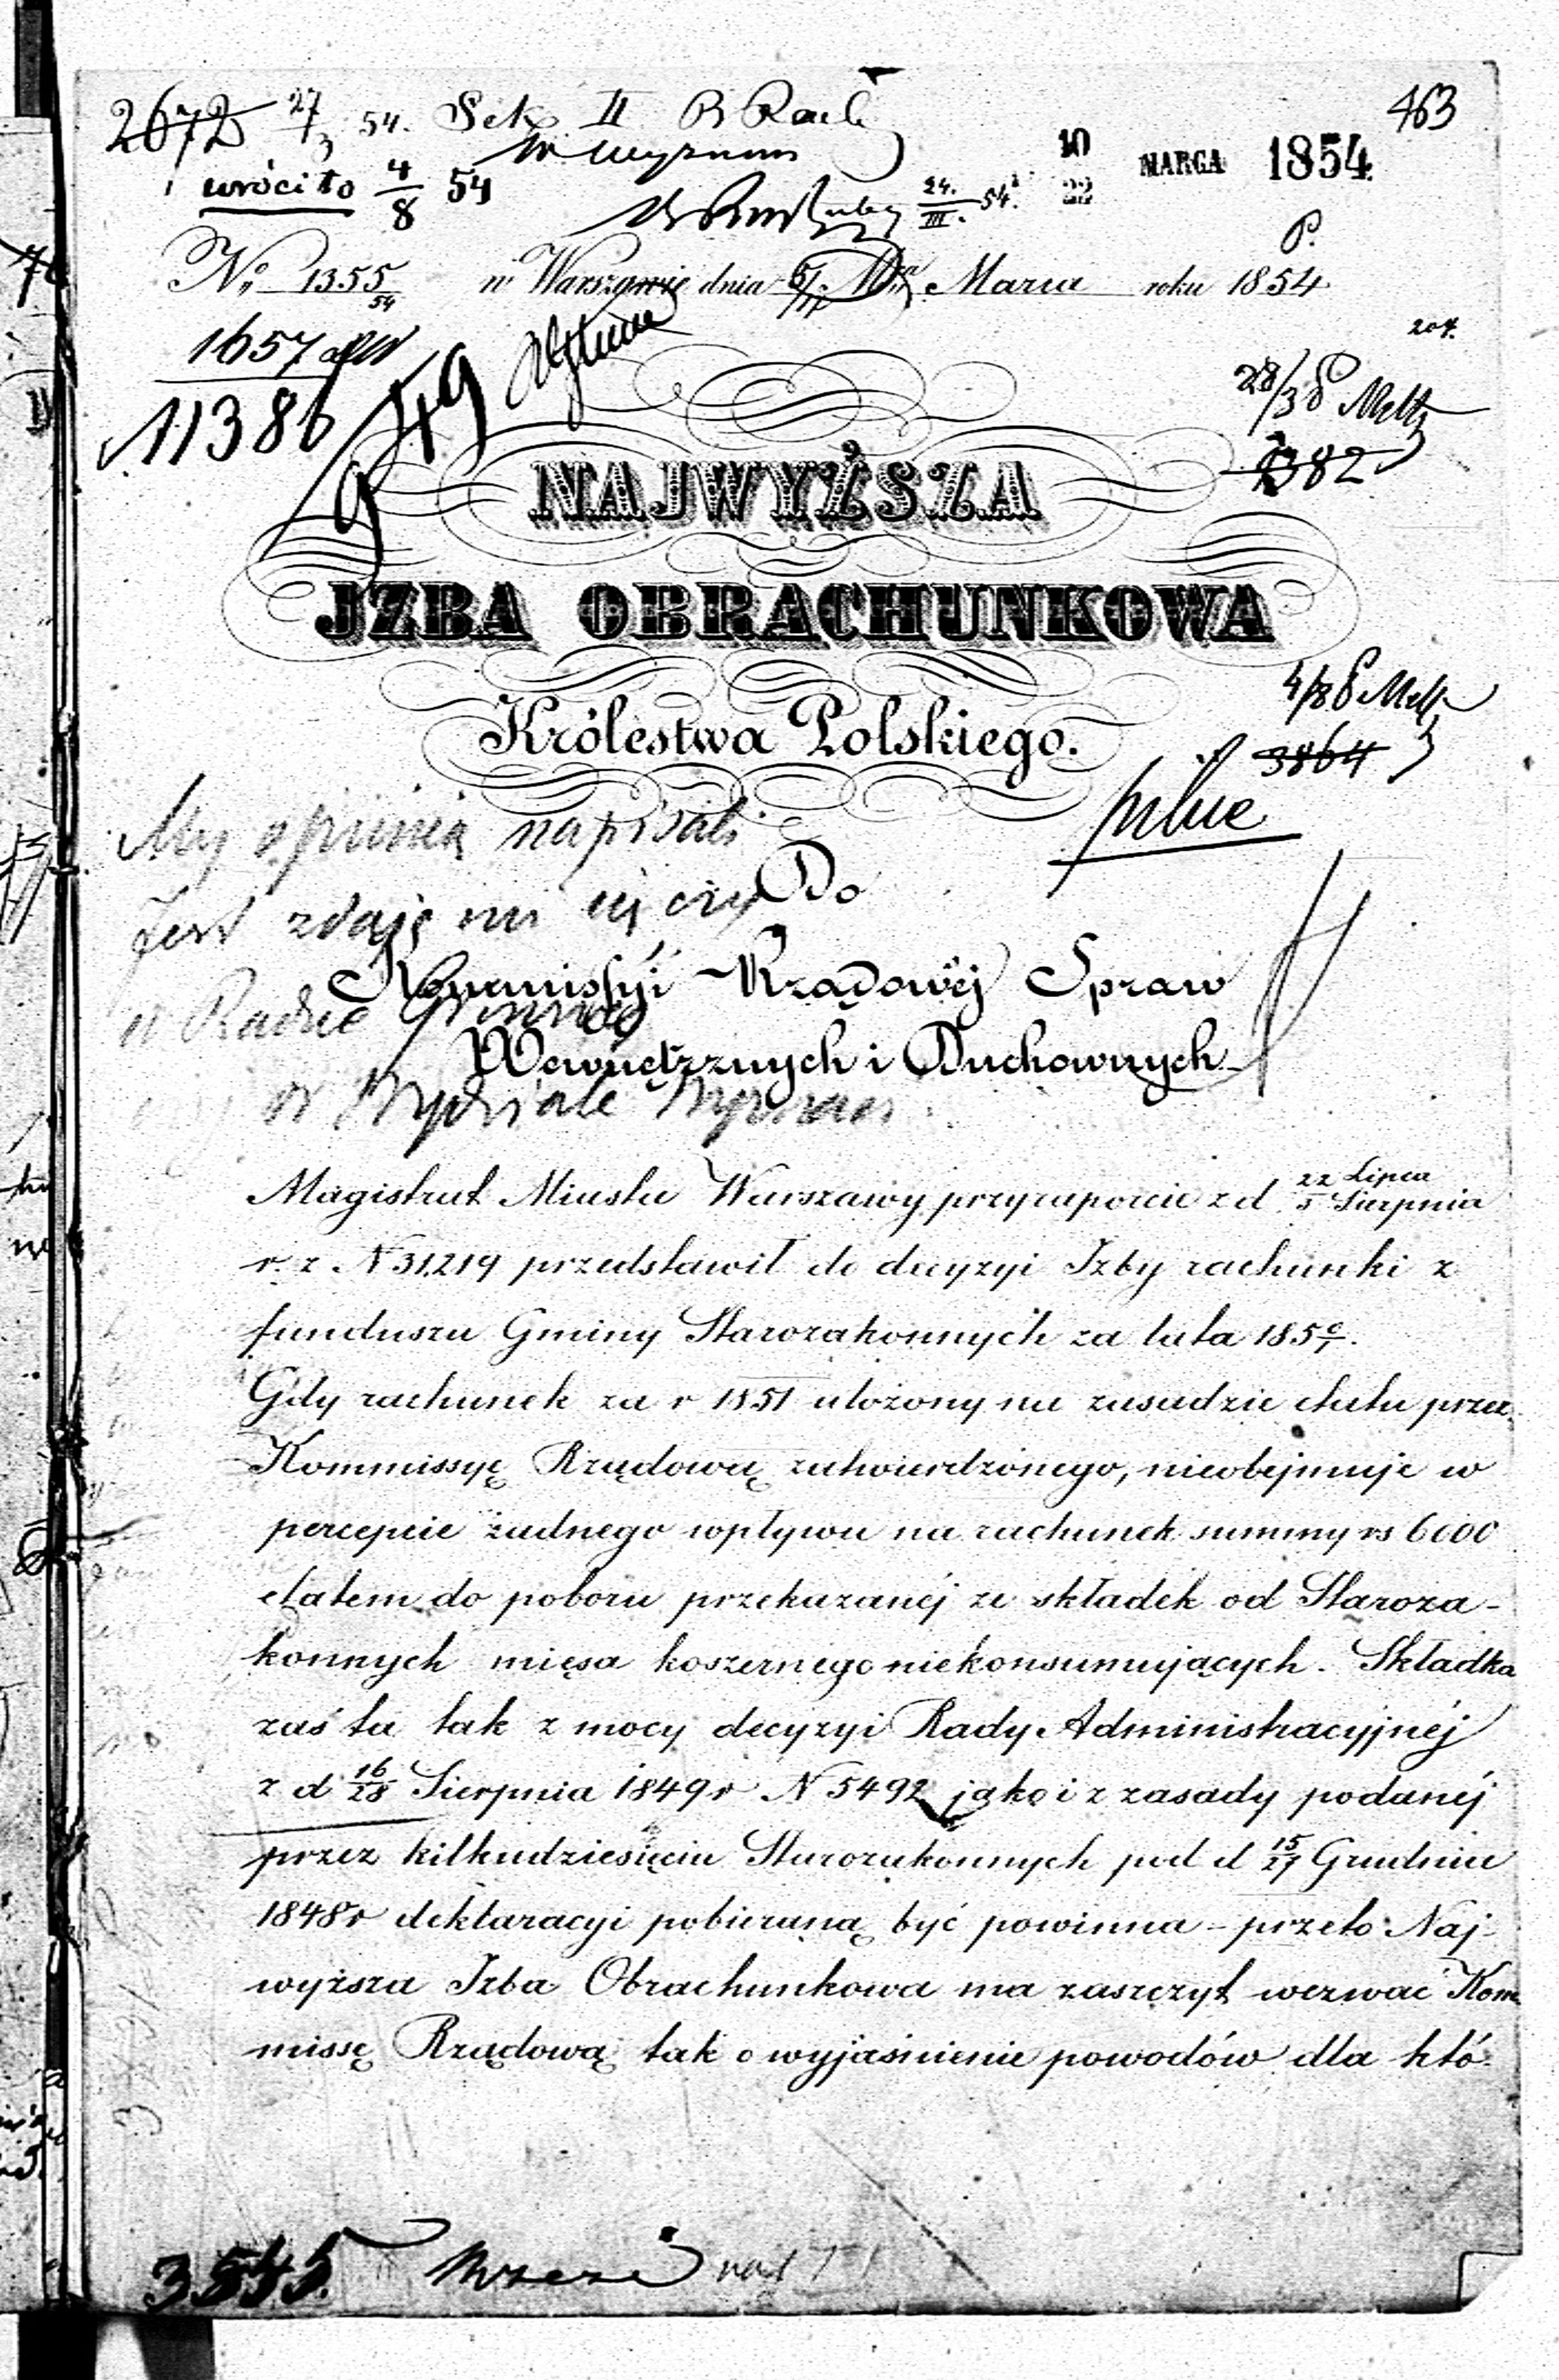 463
2672 27/3 54. Sek II
w wyznan
10/22 MARCA 1854
wróciło 4/8 54
24./III. 54
P.
No 1355/54 w Warszawie dnia Marca roku 1854
204.
1657
11386
9549
28/3 8
1382
NAJWYŻSZA
JZBA OBRACHUNKOWA
Królestwa Polskiego.
4/8 8
3864
pilne
My opinią napisali
Do
Jest zdaje mi się czy
Kommissyi Rządowéj Spraw
w Radzie
Wewnętrznych i Duchownych
w Wydziale Wyznań
Magistrat Miasta Warszawy przy raporcie z d 22 Lipca/3 Sierpnia
r. z. N 31,219 przedstawił do decyzyi Izby rachunki z
funduszu Gminy Starozakonnych za lata 1850/1.
Gdy rachunek za r 1851 ułożony na zasadzie etatu przez
Kommissyę Rządową zatwierdzonego, nieobejmuje w
percepcie żadnego wpływu na rachunek summy rs 6000
etatem do poboru przekazanéj ze składek od Staroza-
konnych mięsa koszernego niekonsumujących. Składka
zaś ta tak z mocy decyzyi Rady Administracyjnéj
z d 16/28 Sierpnia 1849 r N 5492 jako i z zasady podanéj
przez kilkudziesięciu Starozakonnych pod d 15/27 Grudnia
1848 r deklaracyi pobieraną być powinna – przeto Naj-
wyższa Izba Obrachunkowa ma zaszczyt wezwać Kom
missę Rządową tak o wyjaśnienie powodów dla któ-
3545